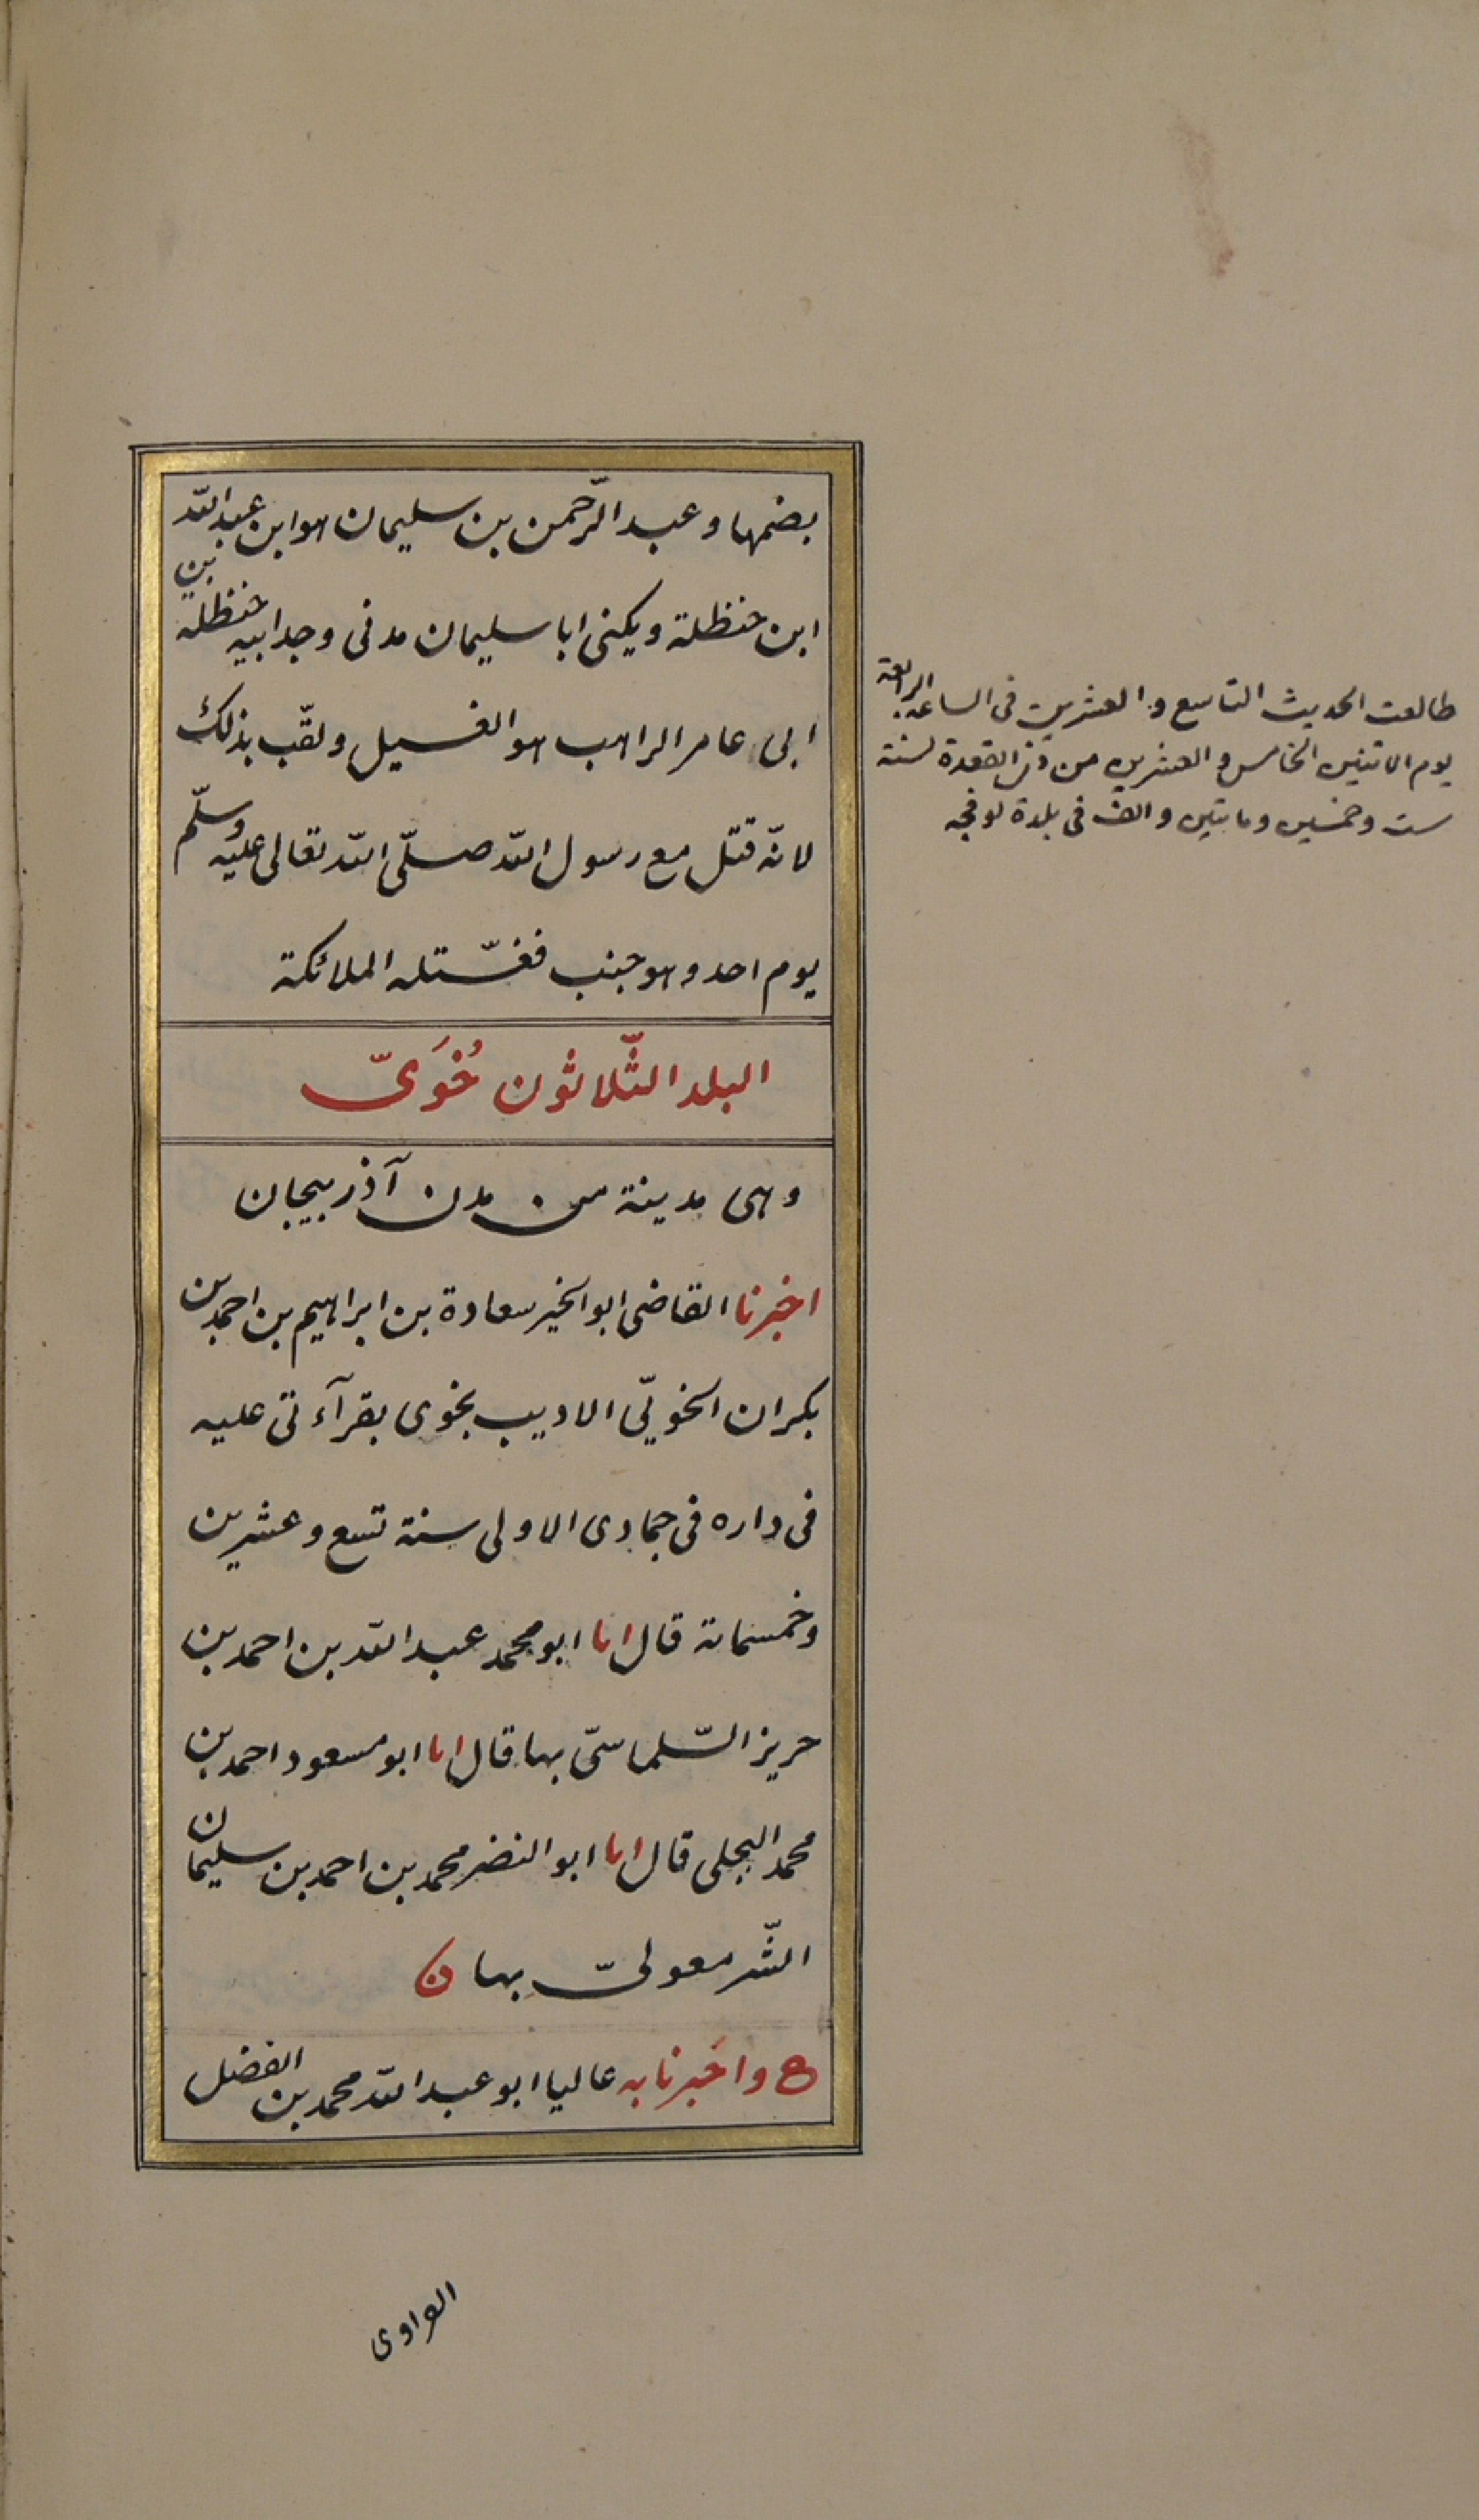 بضمها وعبد الرّحمن بن سليمان هو ابن عبد الله
ابن حنظلة ويكنى ابا سليمان مدنى وجد ابيه حنظلة بن
ابى عامر الراهب هو الغسيل ولقّب بذلك
لانّه قتل مع رسول الله صلّى الله تعالى عليه وسلّم
يوم احد وهو جنب فغسّلته الملائكة
البلد الثّلاثون خُوَىّ
وهى مدينة من مدن آذربيجان
اخبرنا القاضى ابو الخير سعادة بن ابراهيم بن احمد بن
بكران الخويّى الاديب بخوى بقرآءتى عليه
فى داره فى جمادى الاولى سنة تسع وعشرين
وخمسمائة قال انا ابو محمد عبد الله بن احمد بن
حريز السّلماسىّ بها قال انا ابو مسعود احمد بن
محمد البجلى قال انا ابو النضر محمد بن احمد بن سليمان
الشّرمغولىّ بها ن
ح واخبرنا به عاليا ابو عبد الله محمد بن الفضل
طالعت الحديث التاسع والعشرين فى الساعة الرابعة
يوم الاثنين الخامس والعشرين من ذى القعدة لسنة
ست وخمسين ومايتين والف فى بلدة لوفجه
الفراوى